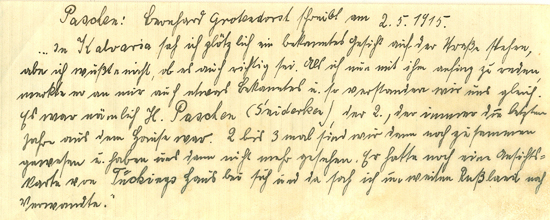 Paschen: Bernhard Grotendorst schreibt am 2.5.1915.
"... In Kalvaria sah ich plötzlich ein bekanntes Gesicht auf der Straße stehen,
aber ich wußte nicht, ob es auch richtig sei. Als ich nun mit ihm anfing zu reden,
merkte er an mir auch etwas Bekanntes u. so verstanden wir uns gleich.
Es war nämlich H. Paschen (Sniderken), der 2., der immer die letzten
Jahre aus dem Hause war. 2 bis 3 mal sind wir dann noch zusammen
gewesen u. haben uns dann nicht mehr gesehen. Er hatte noch eine Ansichts-
karte von Tückings Haus bei sich und da sah ich im weiten Rußland noch
Verwandte."